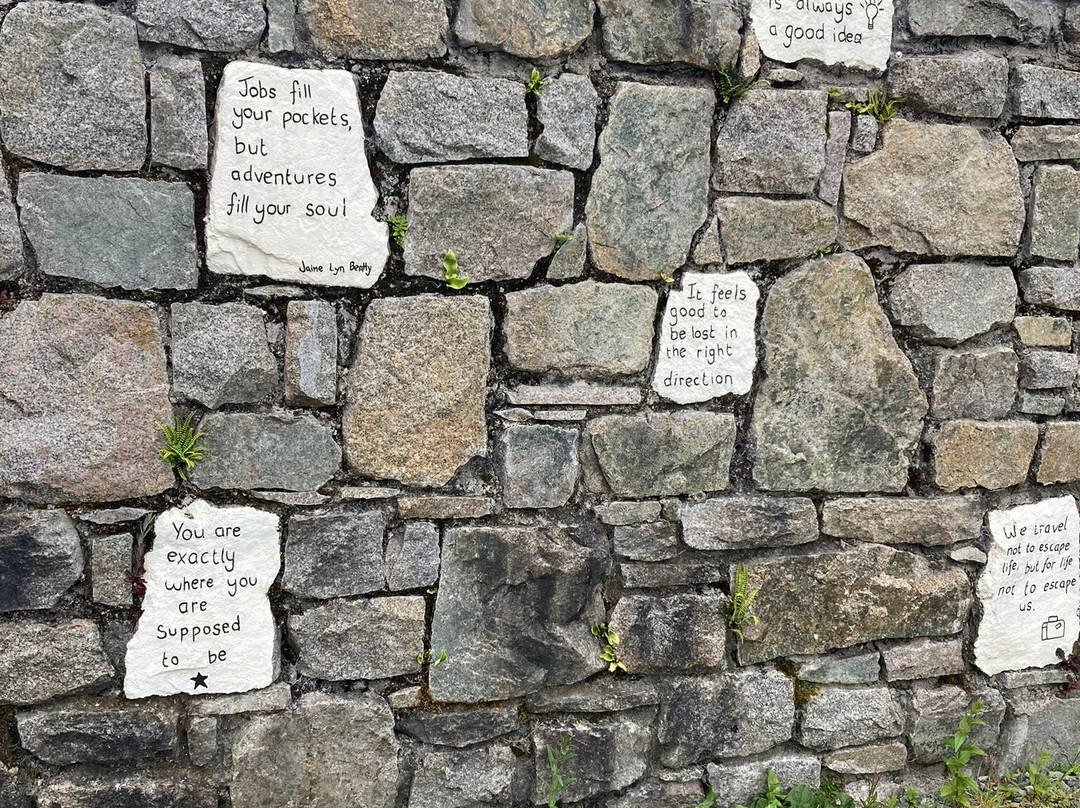 is always
a good idea
Jobs fill
your pockets,
but
adventures
fill your soul
Jaime Lyn Beatty
It feels
good to
be lost in
the right
direction
You are
exactly
where you
are
supposed
to be
We travel
not to escape
life, but for life
not to escape
us.